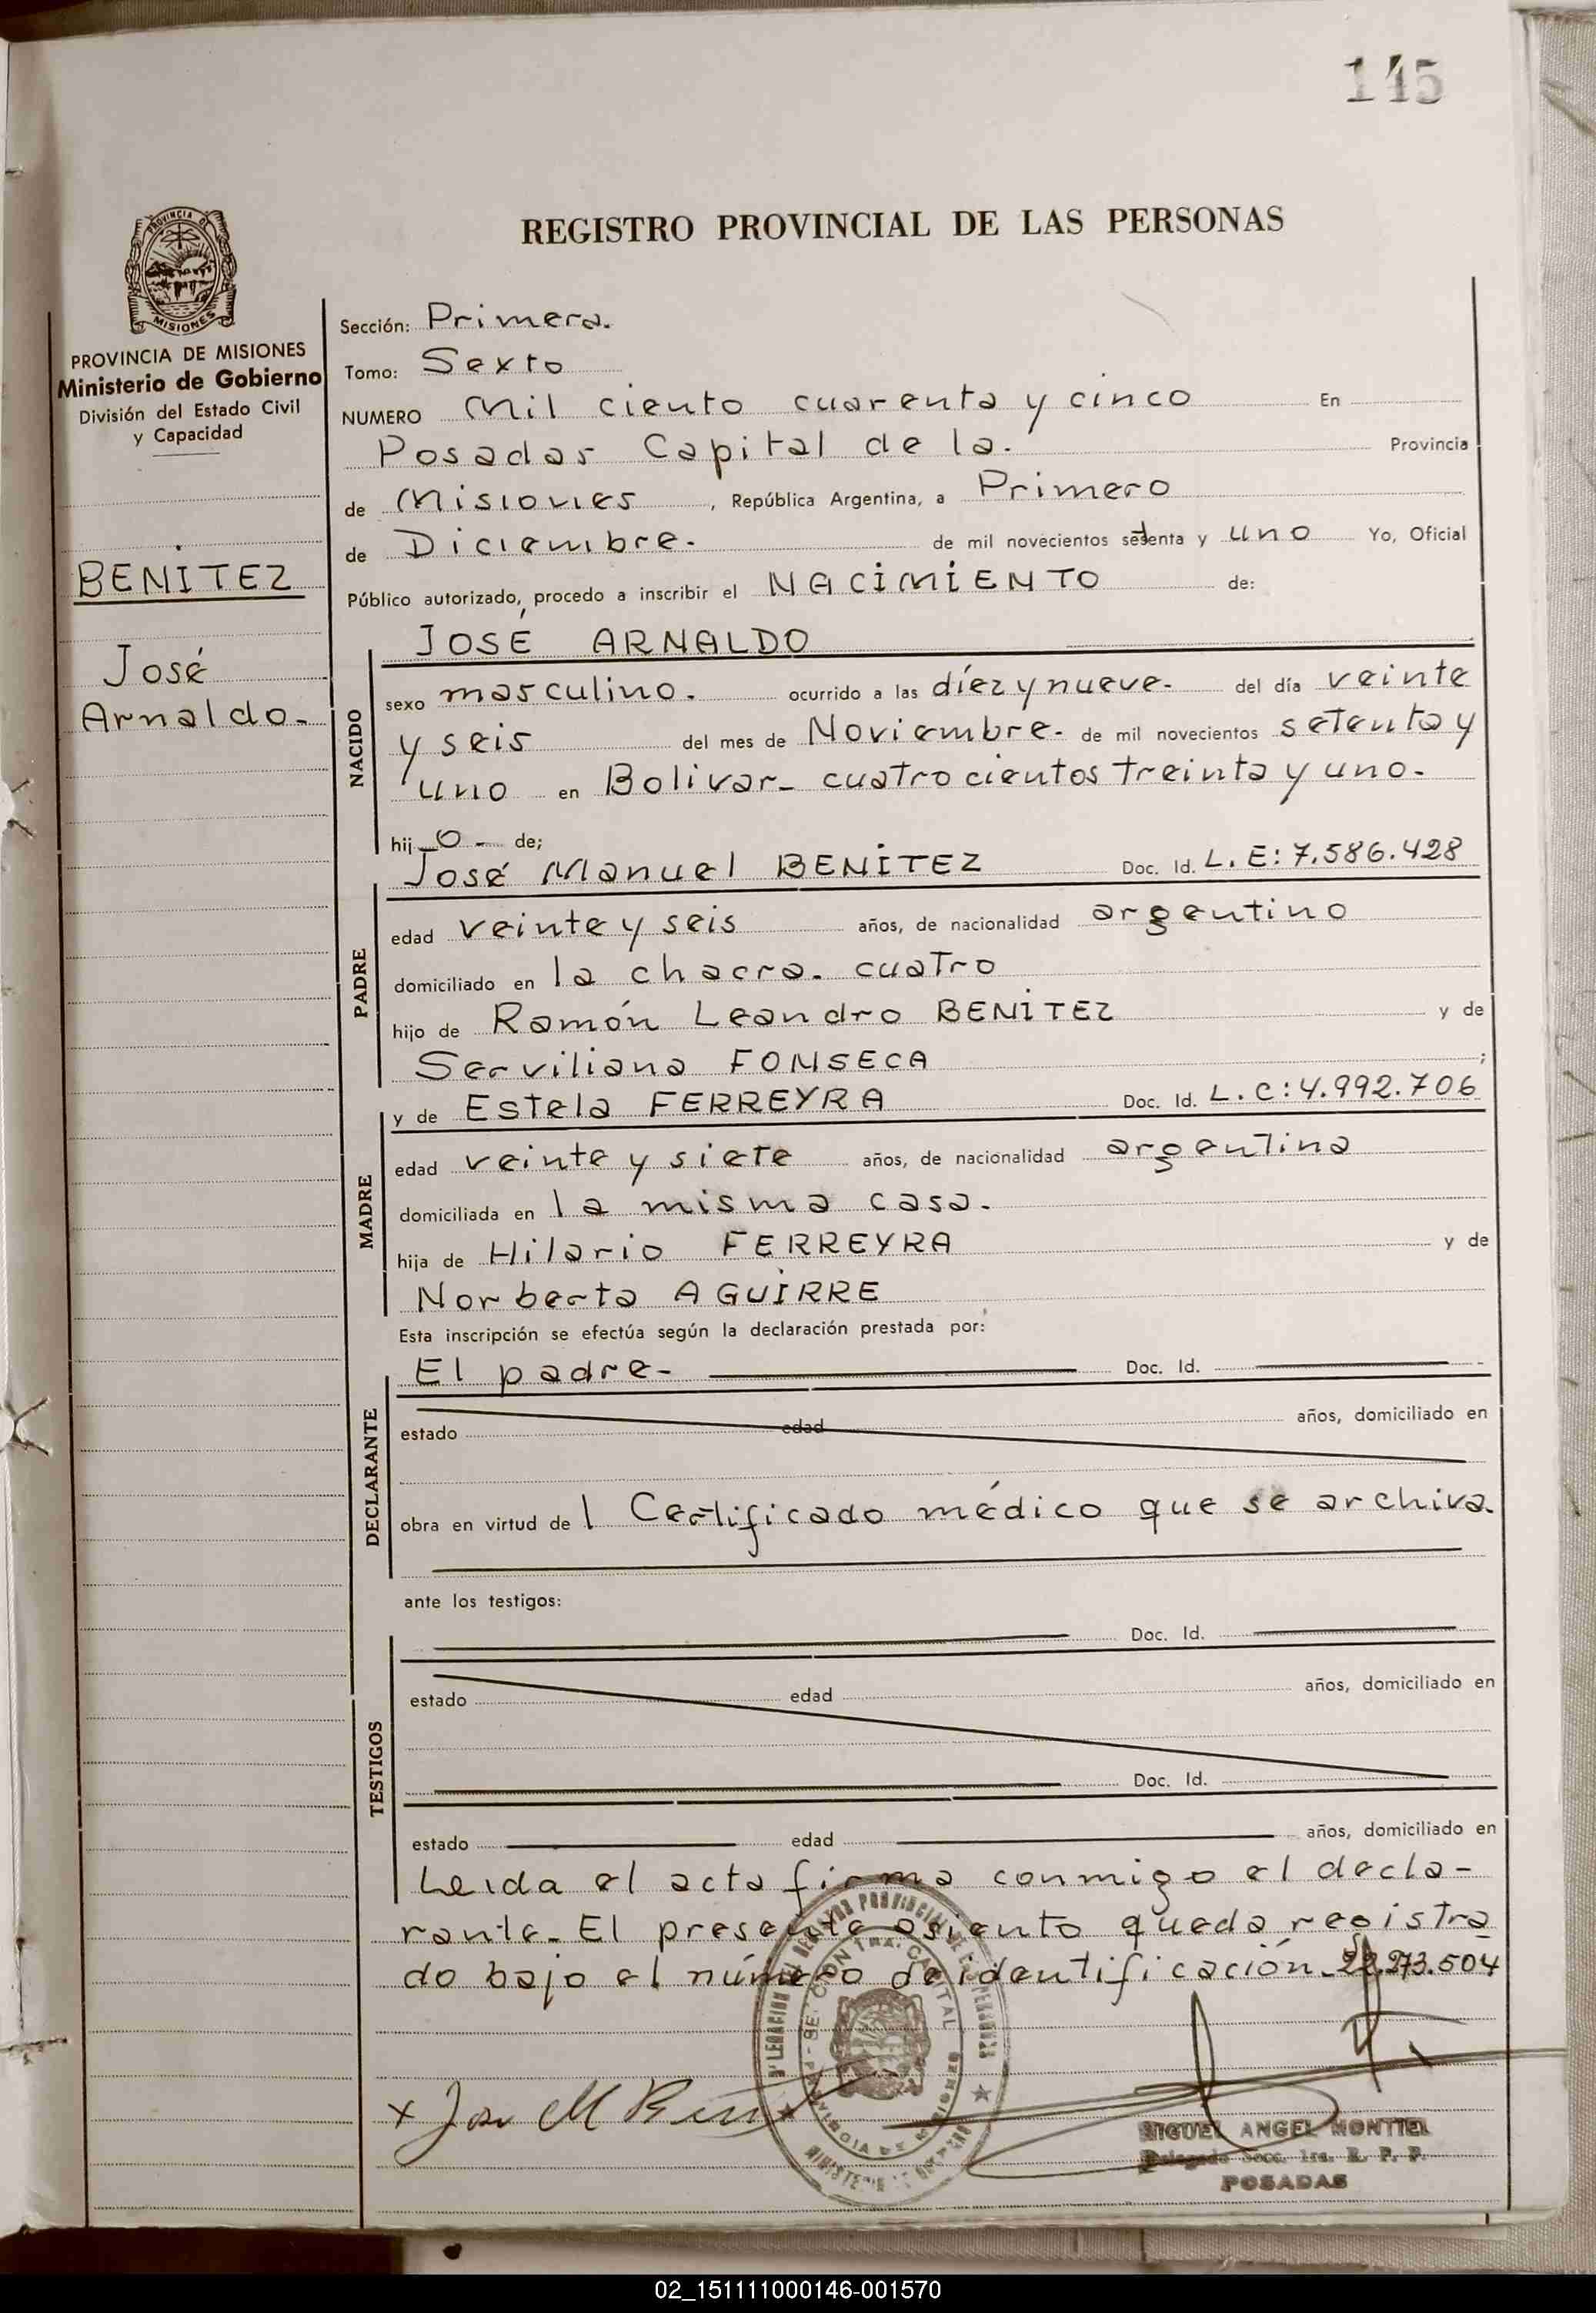 145
REGISTRO PROVINCIAL DE LAS PERSONAS
PROVINCIA DE MISIONES
MISIONES
PROVINCIA DE MISIONES
Ministerio de Gobierno
División del Estado Civil
y Capacidad
BENITEZ
José
Arnaldo-
Sección: Primera.
Tomo: Sexto
NUMERO Mil ciento cuarenta y cinco En
Posadas Capital de la. Provincia
de Misiones, República Argentina, a Primero
de Diciembre. de mil novecientos setenta y uno Yo, Oficial
Público autorizado, procedo a inscribir el NACIMIENTO de:
NACIDO
JOSÉ ARNALDO
sexo masculino. ocurrido a las díez y nueve- del día veinte
y seis del mes de Noviembre- de mil novecientos setenta y
uno en Bolivar- cuatrocientos treinta y uno.
hij o- de;
PADRE
José Manuel BENITEZ Doc. Id. L.E: 7.586.428
edad veinte y seis años, de nacionalidad argentino
domiciliado en la chacra. cuatro
hijo de Ramón Leandro BENITEZ y de
Serviliana FONSECA ;
MADRE
y de Estela FERREYRA Doc. Id. L.C: 4.992.706
edad veinte y siete años, de nacionalidad argentina
domiciliada en la misma casa.
hija de Hilario FERREYRA y de
Norberta AGUIRRE
Esta inscripción se efectúa según la declaración prestada por:
DECLARANTE
El padre- Doc. Id.
estado edad años, domiciliado en
obra en virtud de l Certificado médico que se archiva.
ante los testigos:
TESTIGOS
Doc. Id.
estado edad años, domiciliado en
Doc. Id.
estado edad años, domiciliado en
Leida el acta firma conmigo el decla-
rante- El presente asiento queda registra
do bajo el número de identificación- 22.273.504
x José M Benitez
MIGUEL ANGEL MONTIEL
Delegado Secc. 1ra. R. P. P.
POSADAS
02_151111000146-001570